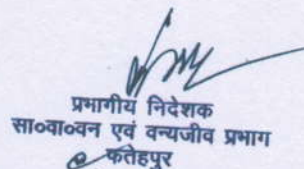 प्रभागीय निदेशक
सा०वा०वन एवं वन्यजीव प्रभाग
फतेहपुर